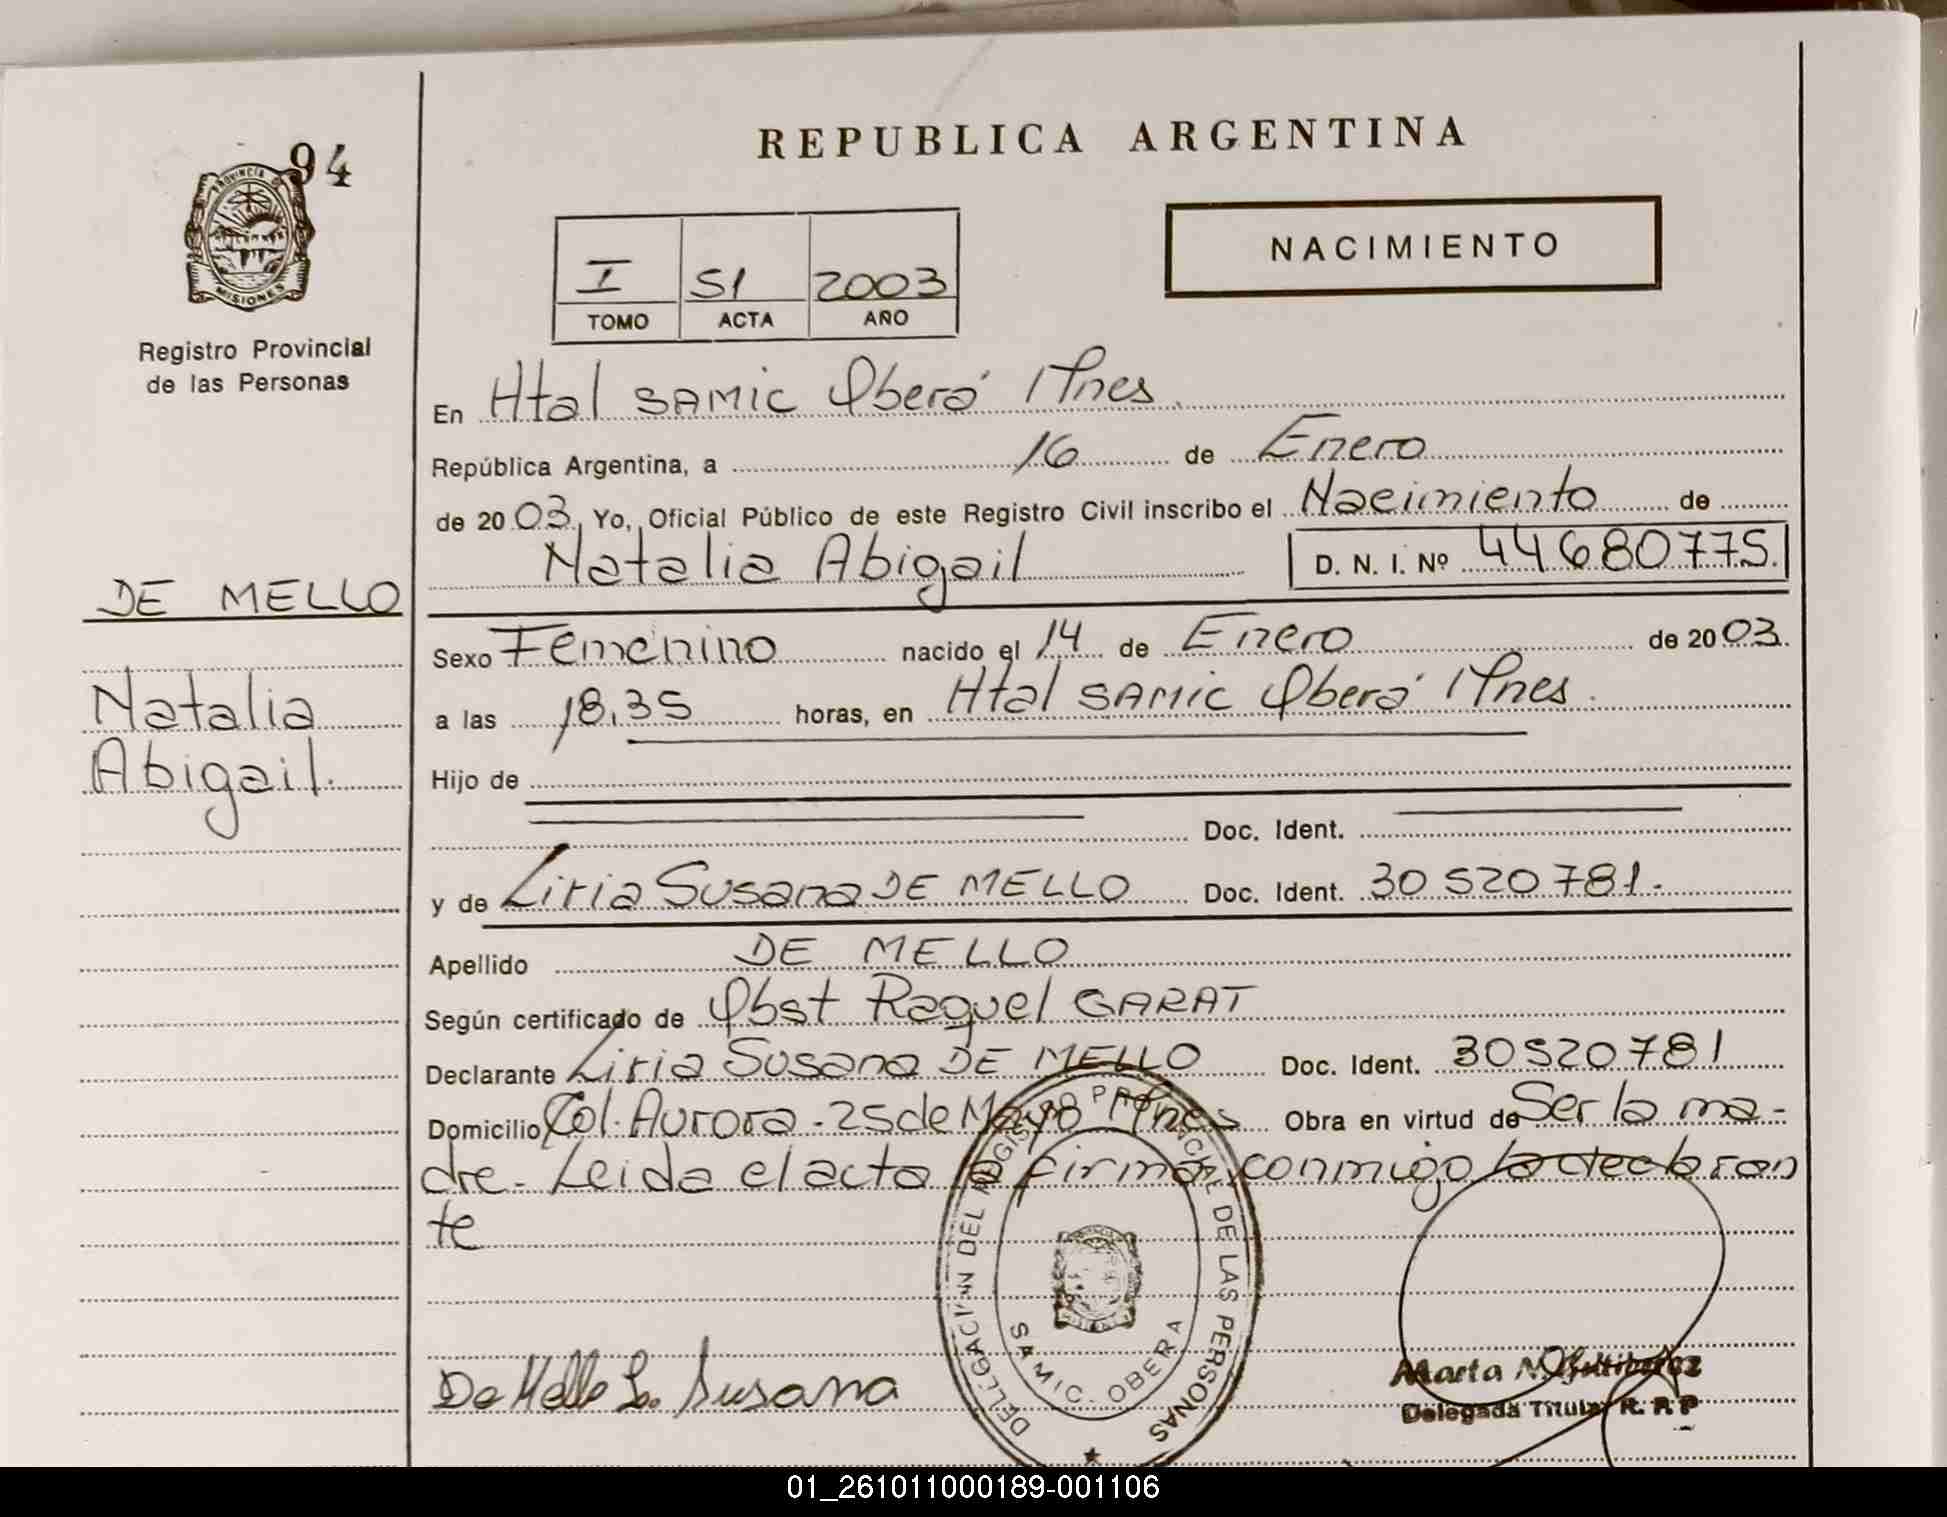 94
PROVINCIA DE
MISIONES
Registro Provincial
de las Personas
DE MELLO
Natalia
Abigail.
REPUBLICA ARGENTINA
NACIMIENTO
I 51 2003
TOMO ACTA AÑO
En Htal SAMIC Oberá Mnes.
República Argentina, a 16 de Enero
de 2003, Yo, Oficial Público de este Registro Civil inscribo el Nacimiento de
Natalia Abigail D. N. I. Nº 44680775.
Sexo Femenino nacido el 14 de Enero de 2003.
a las 18,35 horas, en Htal SAMIC Oberá Mnes.
Hijo de
Doc. Ident.
y de Liria Susana DE MELLO Doc. Ident. 30520781.
Apellido DE MELLO
Según certificado de Obst Raquel GARAT
Declarante Liria Susana DE MELLO Doc. Ident. 30520781
Domicilio Col. Aurora - 25 de Mayo Mnes Obra en virtud de Ser la ma-
dre. Leida el acta la firma conmigo la declaran
te
DELEGACION DEL REGISTRO PROVINCIAL DE LAS PERSONAS
SAMIC. OBERA
De Mello L. Susana
Marta N.
Delegada Titular R. P. P
01_261011000189-001106